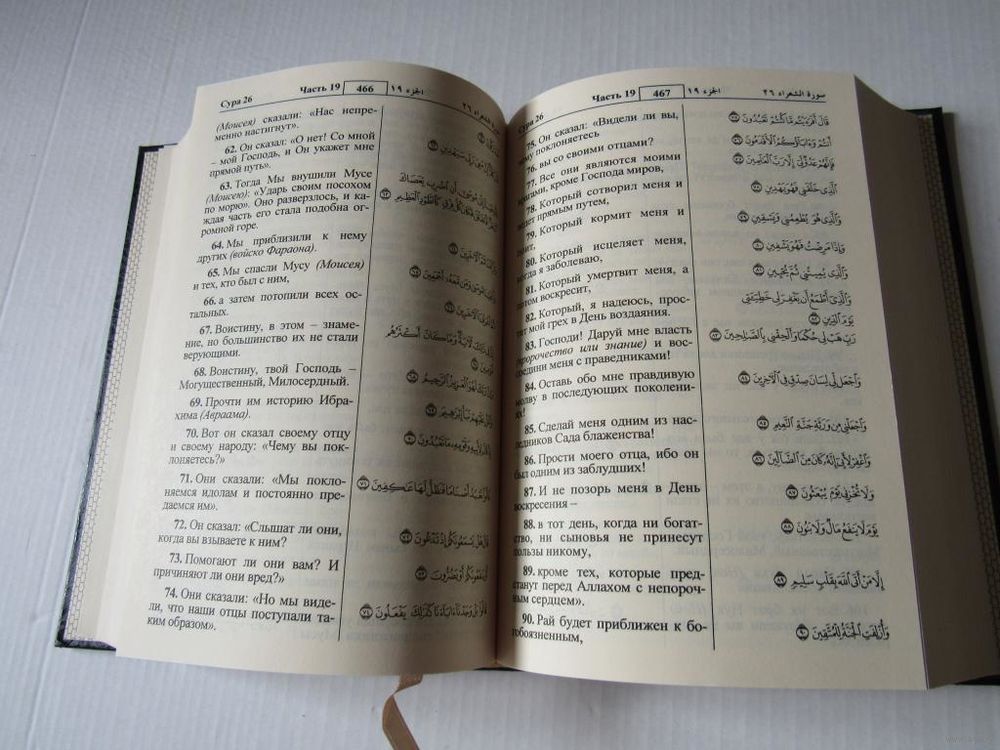 Сура 26 Часть 19 466 الجزء ١٩ سورة الشعراء ٢٦
(Моисея) сказали: «Нас непре-
менно настигнут».
62. Он сказал: «О нет! Со мной
– мой Господь, и Он укажет мне
прямой путь».
63. Тогда Мы внушили Мусе
(Моисею): «Ударь своим посохом
по морю». Оно разверзлось, и ка-
ждая часть его стала подобна ог-
ромной горе.
64. Мы приблизили к нему
других (войско Фараона).
65. Мы спасли Мусу (Моисея)
и тех, кто был с ним,
66. а затем потопили всех ос-
тальных.
67. Воистину, в этом – знаме-
ние, но большинство их не стали
верующими.
68. Воистину, твой Господь –
Могущественный, Милосердный.
69. Прочти им историю Ибра-
хима (Авраама).
70. Вот он сказал своему отцу
и своему народу: «Чему вы пок-
лоняетесь?»
71. Они сказали: «Мы покло-
няемся идолам и постоянно пре-
даемся им».
72. Он сказал: «Слышат ли они,
когда вы взываете к ним?
73. Помогают ли они вам? И
причиняют ли они вред?»
74. Они сказали: «Но мы виде-
ли, что наши отцы поступали та-
ким образом».
Сура 26 Часть 19 467 الجزء ١٩ سورة الشعراء ٢٦
75. Он сказал: «Видели ли вы,
чему поклоняетесь
76. вы со своими отцами?
77. Все они являются моими
врагами, кроме Господа миров,
78. Который сотворил меня и
ведет прямым путем,
79. Который кормит меня и
поит,
80. Который исцеляет меня,
когда я заболеваю,
81. Который умертвит меня, а
потом воскресит,
82. Который, я надеюсь, прос-
тит мой грех в День воздаяния.
83. Господи! Даруй мне власть
(пророчество или знание) и вос-
соедини меня с праведниками!
84. Оставь обо мне правдивую
молву в последующих поколени-
ях!
85. Сделай меня одним из нас-
ледников Сада блаженства!
86. Прости моего отца, ибо он
был одним из заблудших!
87. И не позорь меня в День
воскресения –
88. в тот день, когда ни богат-
ство, ни сыновья не принесут
пользы никому,
89. кроме тех, которые пред-
станут перед Аллахом с непороч-
ным сердцем».
90. Рай будет приближен к бо-
гобоязненным,
قَالَ أَفَرَءَيْتُم مَّا كُنتُمْ تَعْبُدُونَ ٧٥
أَنتُمْ وَءَابَآؤُكُمُ ٱلْأَقْدَمُونَ ٧٦
فَإِنَّهُمْ عَدُوٌّ لِّىٓ إِلَّا رَبَّ ٱلْعَٰلَمِينَ ٧٧
ٱلَّذِى خَلَقَنِى فَهُوَ يَهْدِينِ ٧٨
وَٱلَّذِى هُوَ يُطْعِمُنِى وَيَسْقِينِ ٧٩
وَإِذَا مَرِضْتُ فَهُوَ يَشْفِينِ ٨٠
وَٱلَّذِى يُمِيتُنِى ثُمَّ يُحْيِينِ ٨١
وَٱلَّذِىٓ أَطْمَعُ أَن يَغْفِرَ لِى خَطِيٓـَٔتِى
يَوْمَ ٱلدِّينِ ٨٢
رَبِّ هَبْ لِى حُكْمًا وَأَلْحِقْنِى بِٱلصَّٰلِحِينَ ٨٣
وَٱجْعَل لِّى لِسَانَ صِدْقٍ فِى ٱلْءَاخِرِينَ ٨٤
وَٱجْعَلْنِى مِن وَرَثَةِ جَنَّةِ ٱلنَّعِيمِ ٨٥
وَٱغْفِرْ لِأَبِىٓ إِنَّهُۥ كَانَ مِنَ ٱلضَّآلِّينَ ٨٦
وَلَا تُخْزِنِى يَوْمَ يُبْعَثُونَ ٨٧
يَوْمَ لَا يَنفَعُ مَالٌ وَلَا بَنُونَ ٨٨
إِلَّا مَنْ أَتَى ٱللَّهَ بِقَلْبٍ سَلِيمٍ ٨٩
وَأُزْلِفَتِ ٱلْجَنَّةُ لِلْمُتَّقِينَ ٩٠